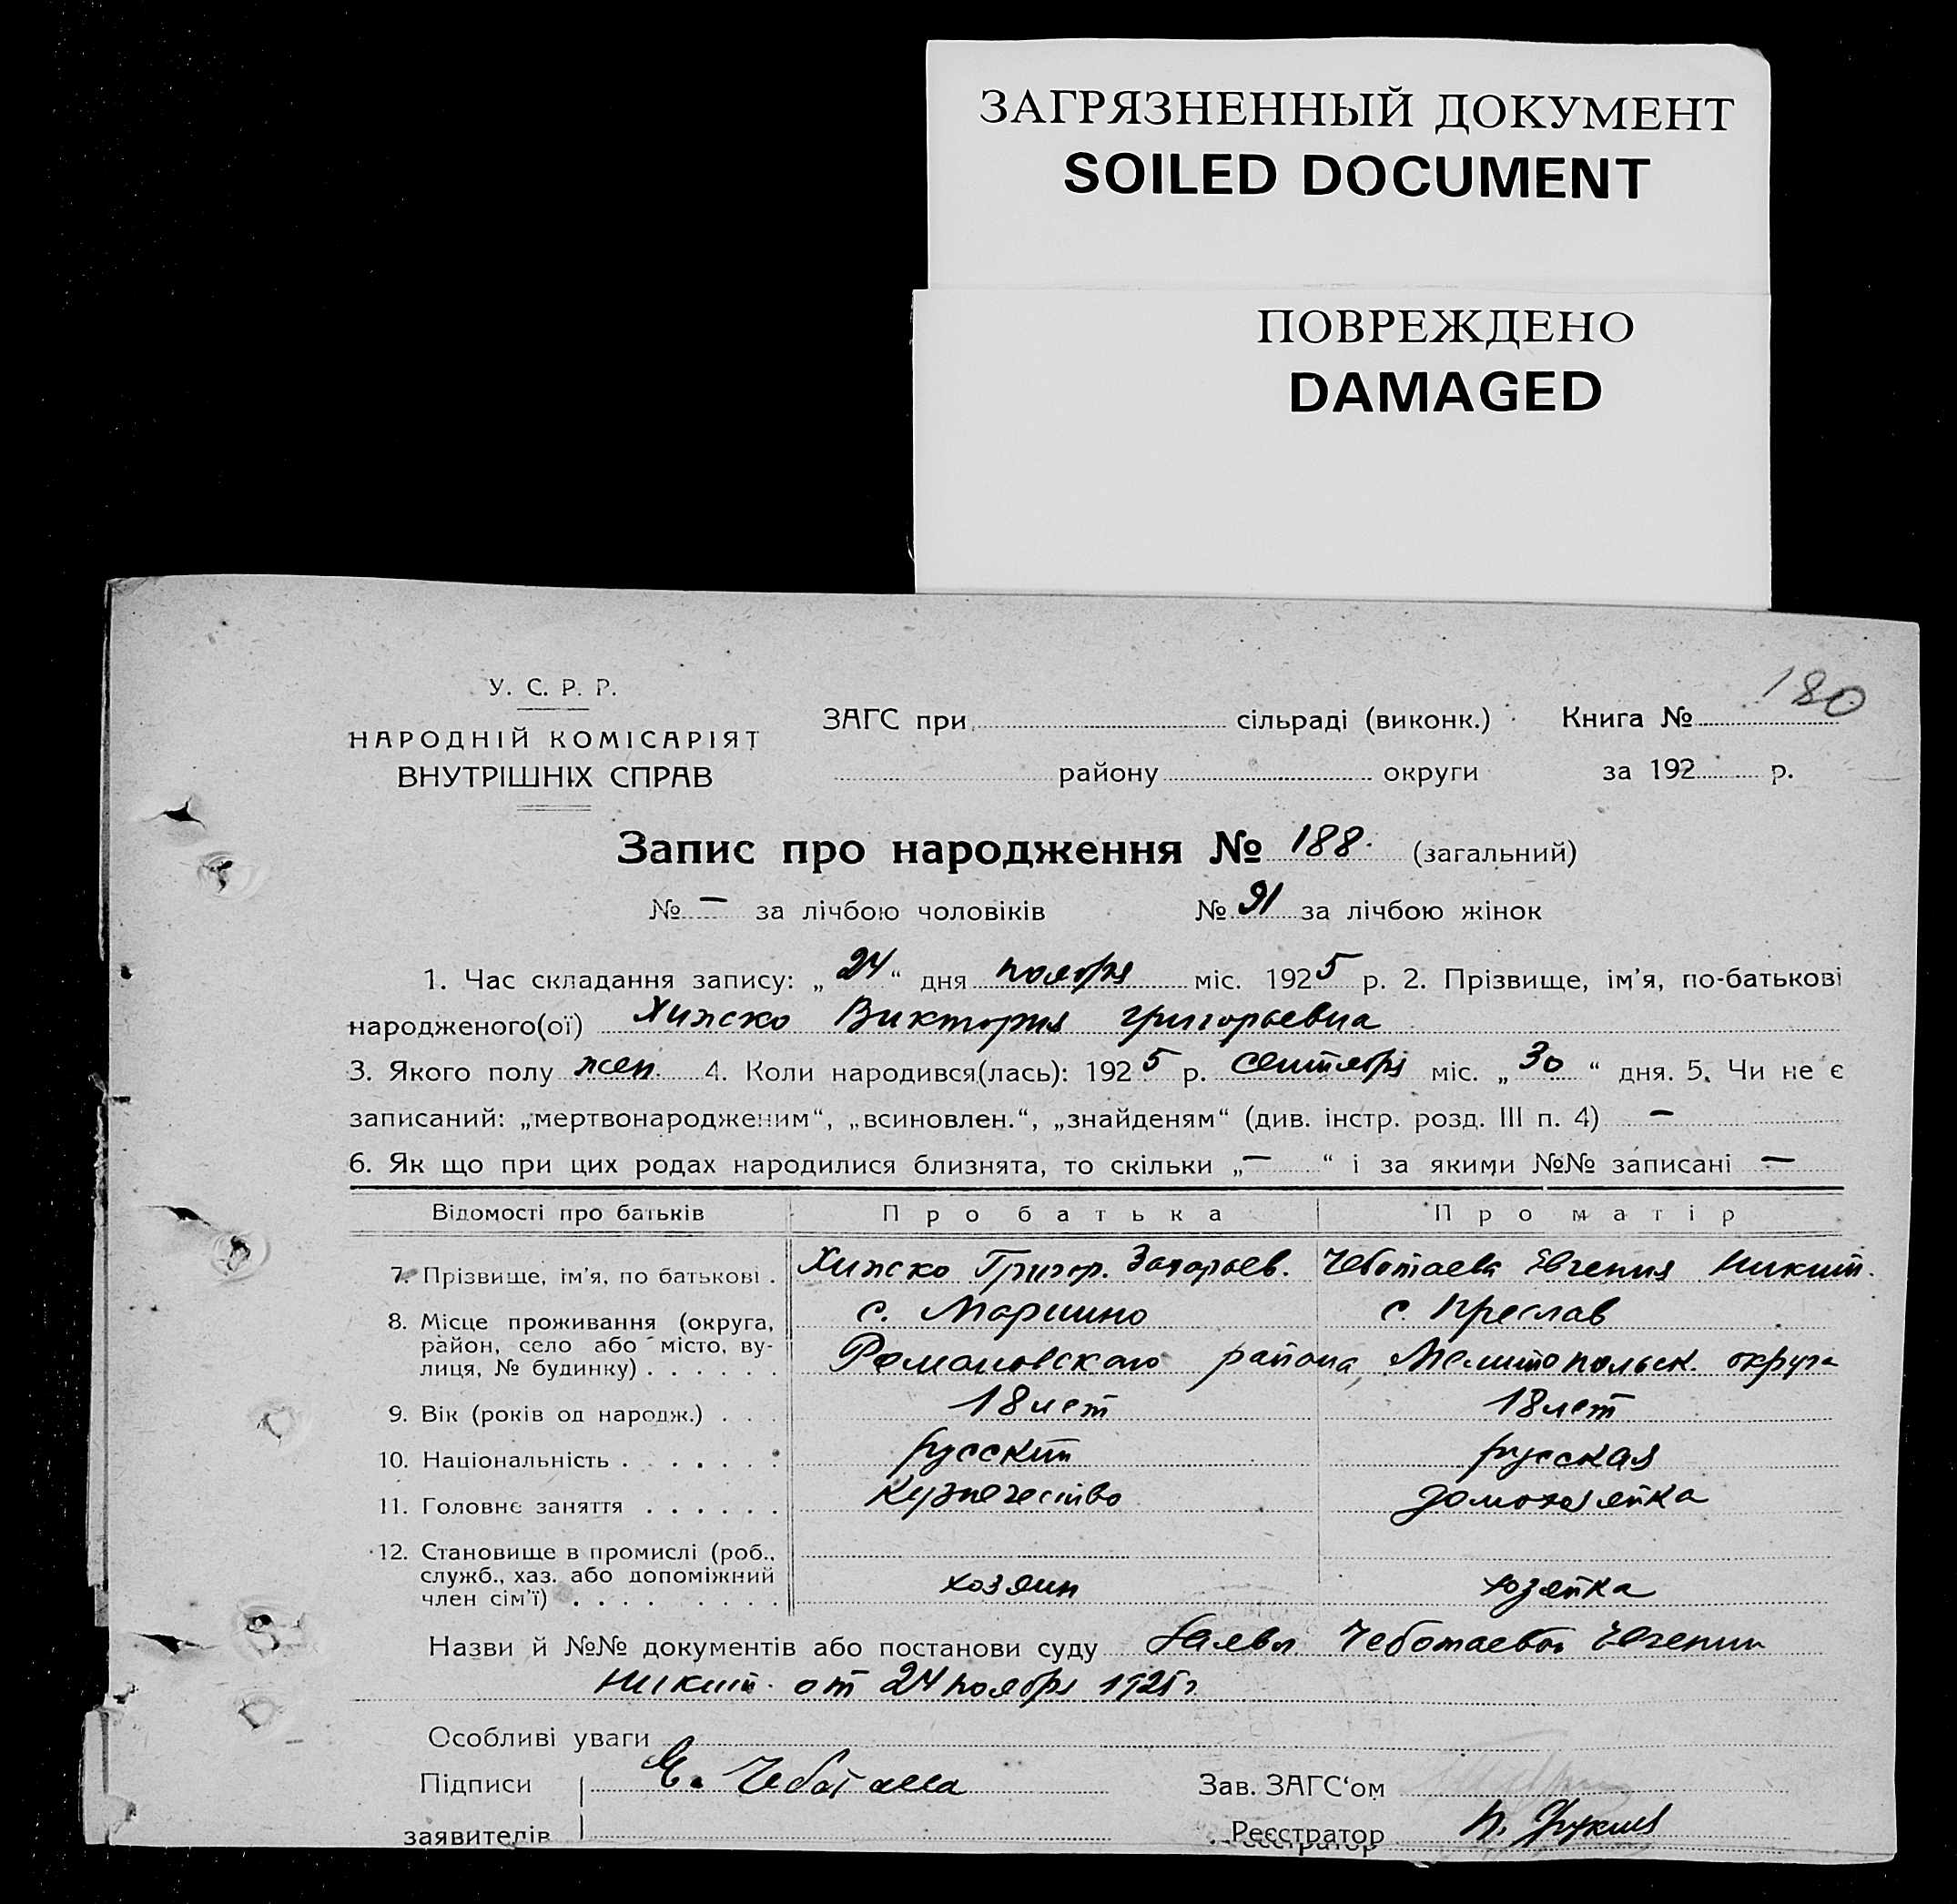 ЗАГРЯЗНЕННЫЙ ДОКУМЕНТ
SOILED DOCUMENT
ПОВРЕЖДЕНО
DAMAGED
180
У. С. Р. Р.
НАРОДНІЙ КОМІСАРІЯТ
ВНУТРІШНІХ СПРАВ
ЗАГС при сільраді (виконк.) Книга №
району округи за 192 р.
Запис про народження № 188. (загальний)
№ — за лічбою чоловіків № 91 за лічбою жінок
1. Час складання запису: „24“ дня ноября міс. 1925 р. 2. Прізвище, ім'я, по-батькові
народженого(ої) Хижско Виктория Григорьевна
3. Якого полу жен. 4. Коли народився(лась): 1925 р. сентября міс. „30“ дня. 5. Чи не є
записаний: „мертвонародженим“, „всиновлен.“, „знайденям“ (див. інстр. розд. III п. 4) —
6. Як що при цих родах народилися близнята, то скільки „—“ і за якими №№ записані —
Відомості про батьків Про батька Про матір
7. Прізвище, ім'я, по батькові . Хижско Григор. Захарьев. Чеботаева Евгения Никит.
8. Місце проживання (округа, район, село або місто, вулиця, № будинку) . . . . . . с. Маршино с. Преслав
Романовского района, Мелитопольск. округа
9. Вік (років од народж.) . . . 18 лет 18 лет
10. Національність . . . . . . . русский русская
11. Головне заняття . . . . . . Кузнечество домохозяйка
12. Становище в промислі (роб., служб., хаз. або допоміжний член сім'ї) . . . . . . . . хозяин хозяйка
Назви й №№ документів або постанови суду Заявл. Чеботаевой Евгении
Никит. от 24 ноября 1925 г.
Особливі уваги
Підписи Е. Чебатаева Зав. ЗАГС'ом
заявителів Реєстратор